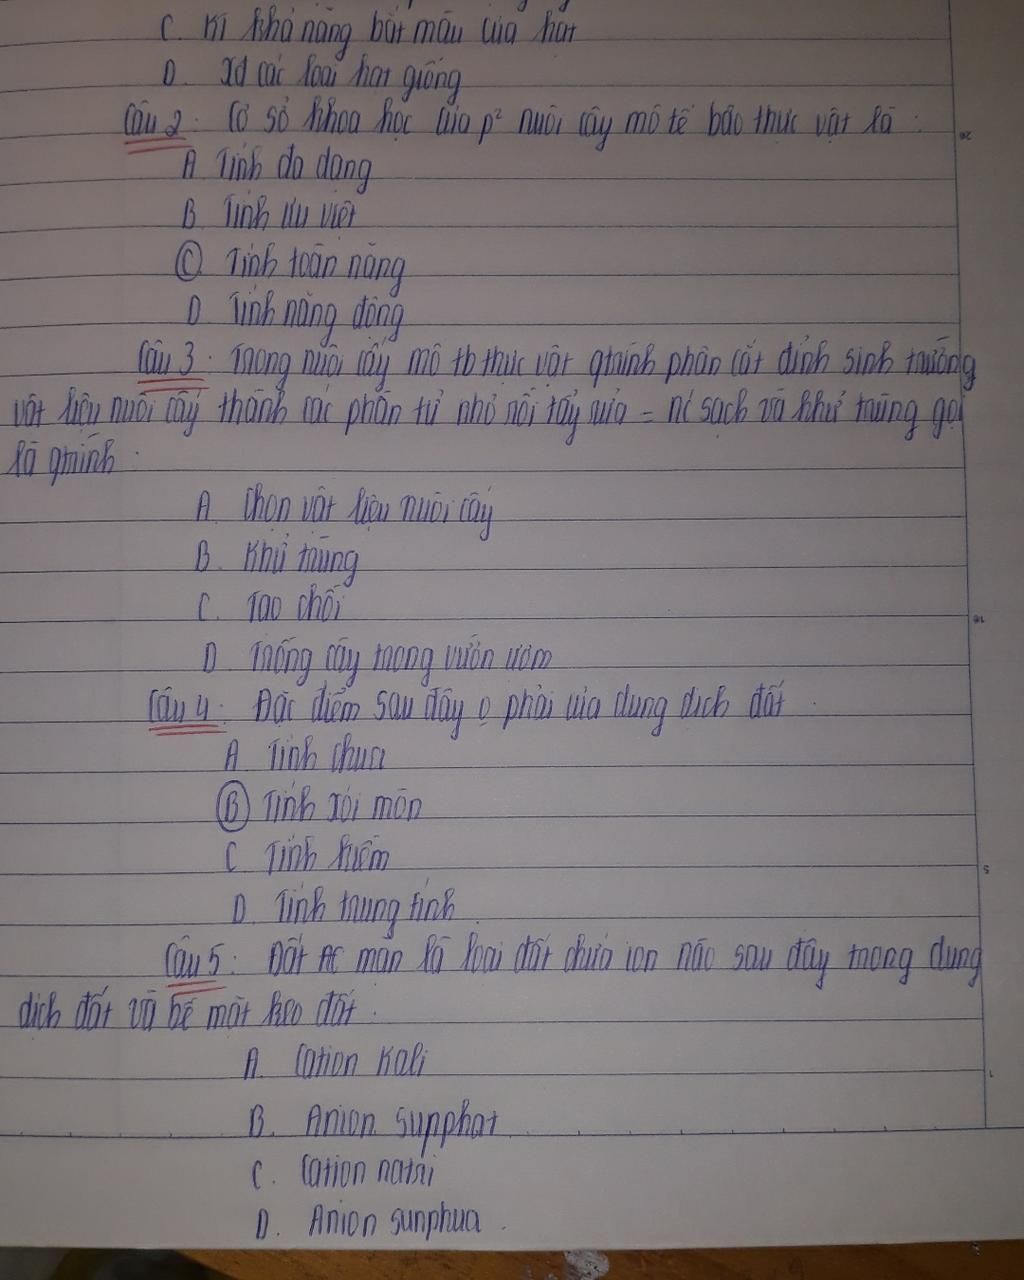 C. KT khả năng bắt màu của hạt
D. Xđ các loại hạt giống
Câu 2: Cơ sở khoa học của p² nuôi cấy mô tế bào thực vật là:
A Tính đa dạng
B Tính ưu việt
C. Tính toàn năng
D. Tính năng động
Câu 3: Trong nuôi cấy mô tb thực vật qtrình phân cắt đỉnh sinh trưởng
vật liệu nuôi cấy thành các phần tử nhỏ rồi tẩy rửa = nc sạch và khử trùng gọi
là qtrình:
A Chọn vật liệu nuôi cấy
B. Khử trùng
C. Tạo chồi
D Trồng cây trong vườn ươm
Câu 4: Đặc điểm sau đây 0 phải của dung dịch đất
A Tính chua
B Tính xói mòn
C Tính kiềm
D. Tính trung tính
Câu 5: Đất mặn là loại đất chứa ion nào sau đây trong dung
dịch đất và bề mặt keo đất.
A. Cation Kali
B. Anion sunphat
C. Cation natri
D. Anion sunphua.